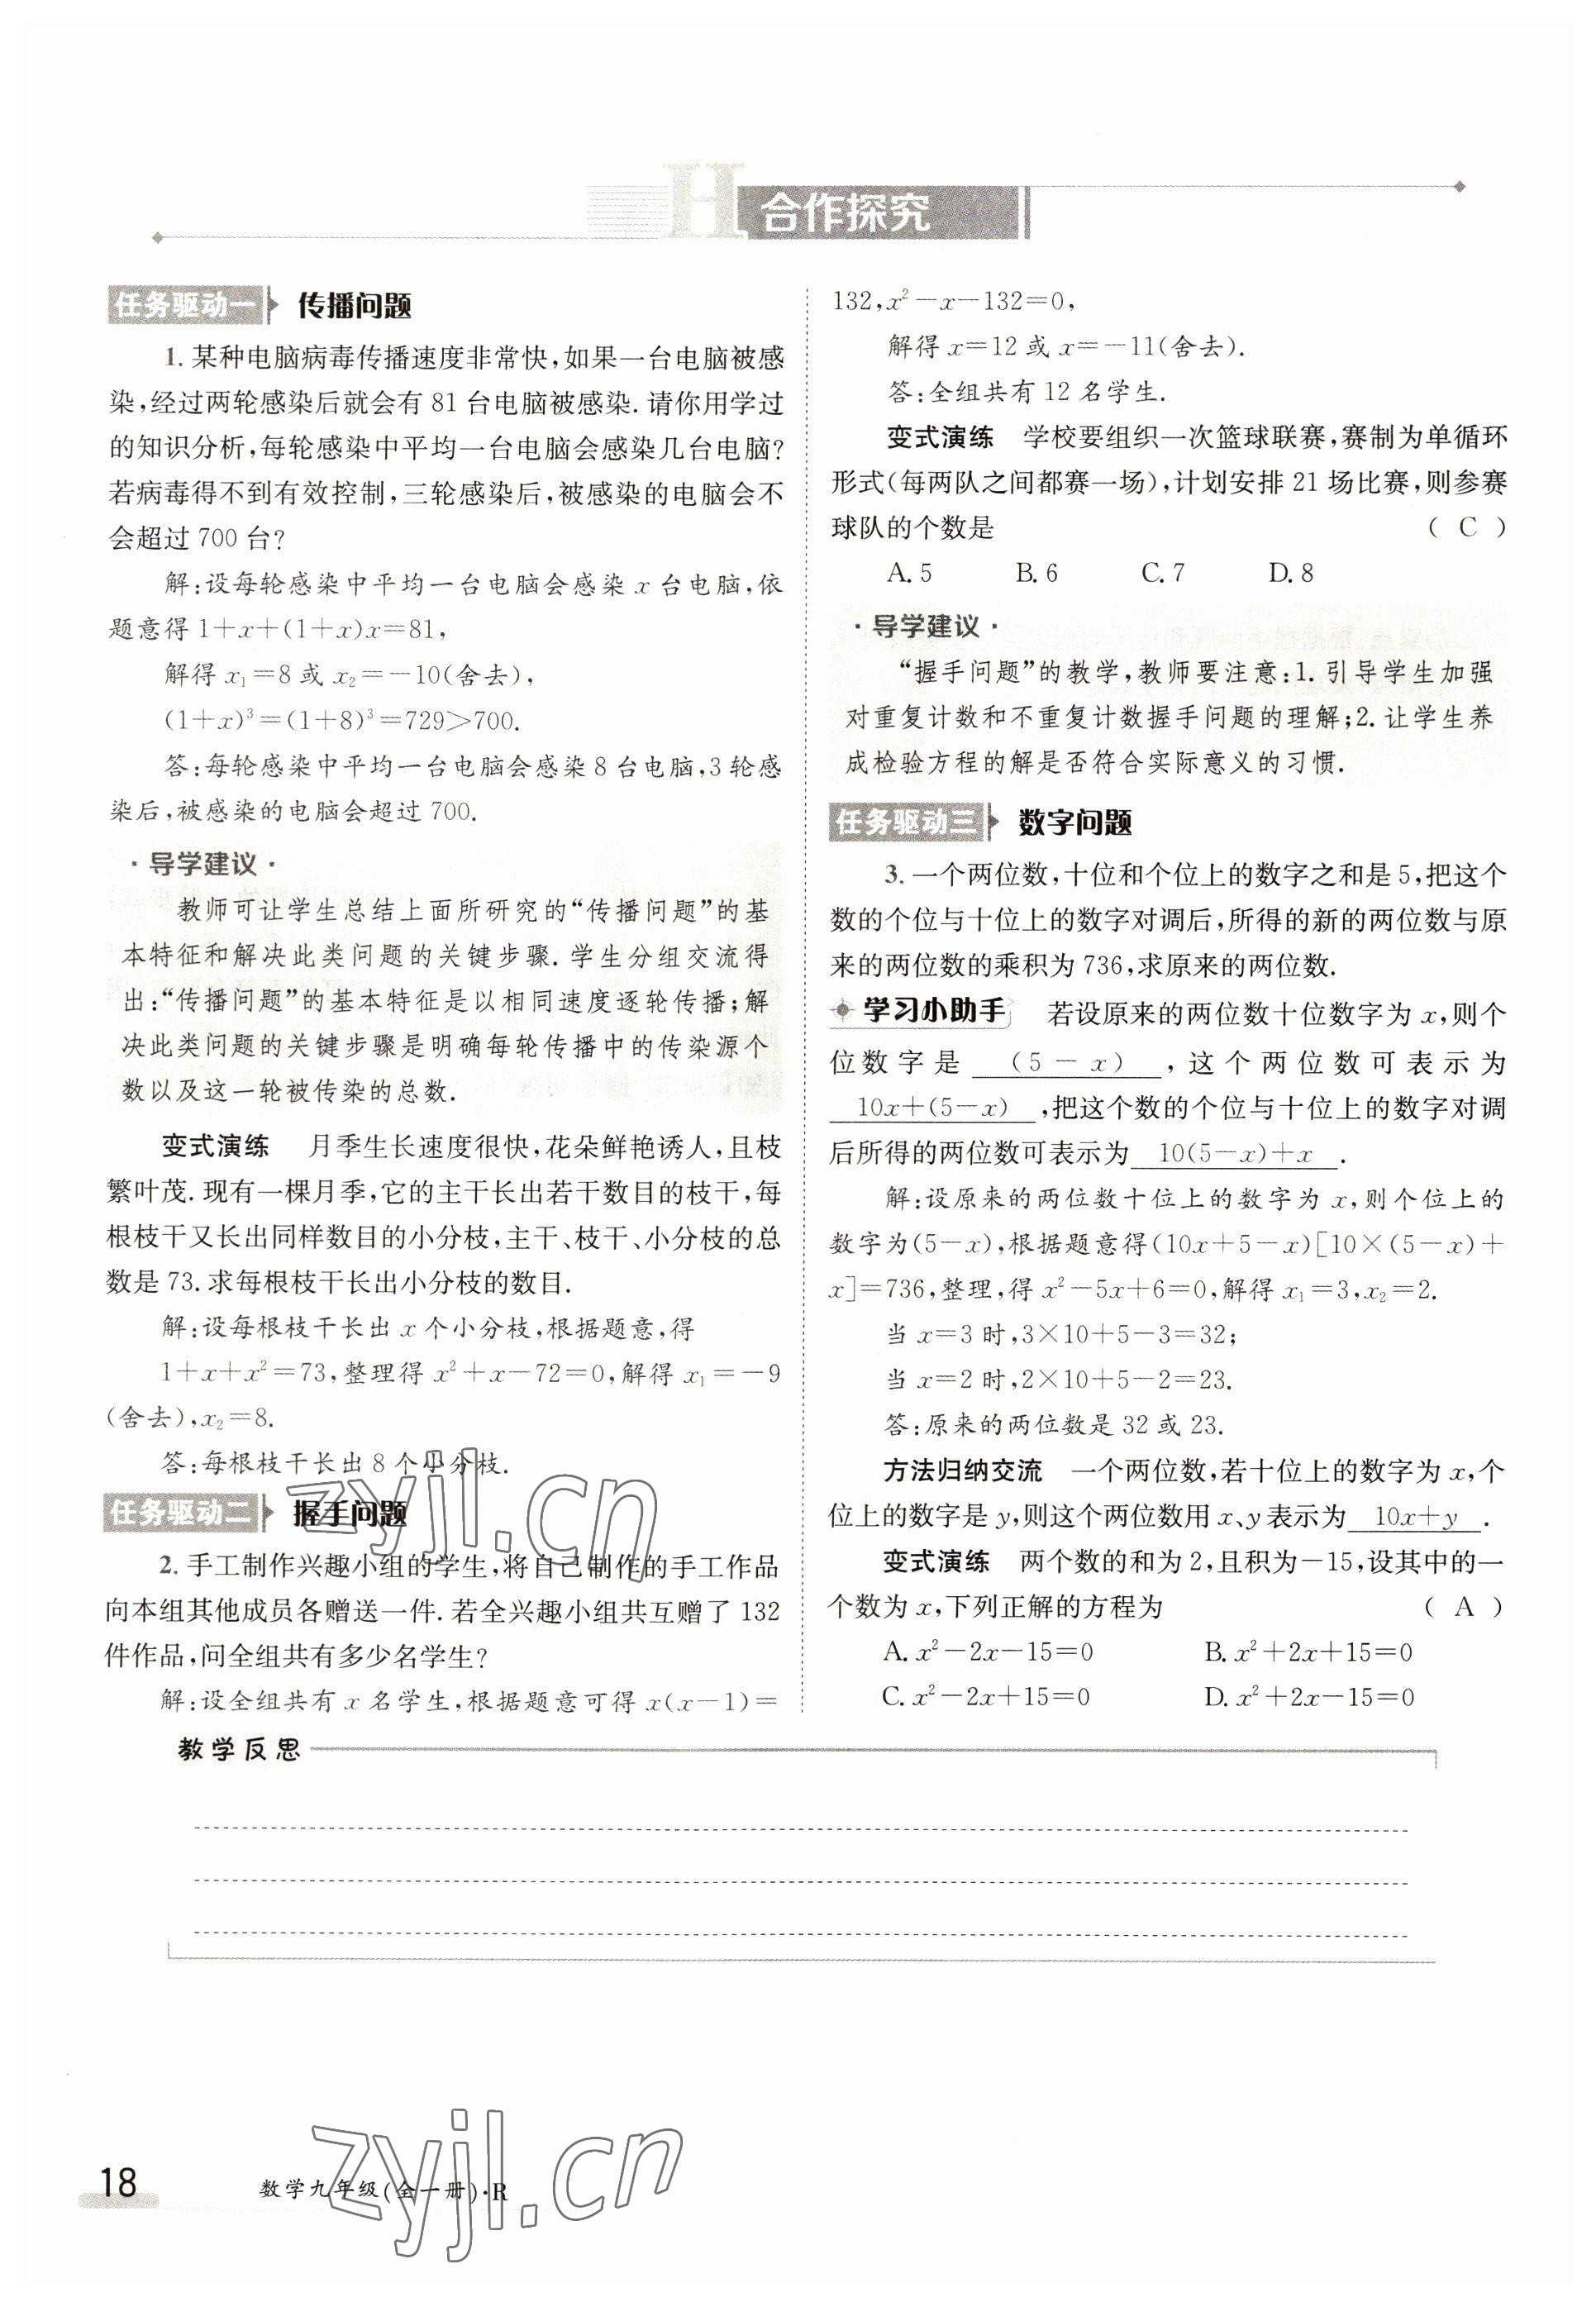 H 合作探究
任务驱动一 传播问题
1. 某种电脑病毒传播速度非常快,如果一台电脑被感
染,经过两轮感染后就会有 81 台电脑被感染. 请你用学过
的知识分析,每轮感染中平均一台电脑会感染几台电脑?
若病毒得不到有效控制,三轮感染后,被感染的电脑会不
会超过 700 台?
解:设每轮感染中平均一台电脑会感染 x 台电脑,依
题意得 1+x+(1+x)x=81,
解得 x₁=8 或 x₂=-10(舍去),
(1+x)³=(1+8)³=729>700.
答:每轮感染中平均一台电脑会感染 8 台电脑,3 轮感
染后,被感染的电脑会超过 700.
·导学建议·
教师可让学生总结上面所研究的“传播问题”的基
本特征和解决此类问题的关键步骤. 学生分组交流得
出:“传播问题”的基本特征是以相同速度逐轮传播;解
决此类问题的关键步骤是明确每轮传播中的传染源个
数以及这一轮被传染的总数.
变式演练 月季生长速度很快,花朵鲜艳诱人,且枝
繁叶茂. 现有一棵月季,它的主干长出若干数目的枝干,每
根枝干又长出同样数目的小分枝,主干、枝干、小分枝的总
数是 73. 求每根枝干长出小分枝的数目.
解:设每根枝干长出 x 个小分枝,根据题意,得
1+x+x²=73,整理得 x²+x-72=0,解得 x₁=-9
(舍去),x₂=8.
答:每根枝干长出 8 个小分枝.
任务驱动二 握手问题
2. 手工制作兴趣小组的学生,将自己制作的手工作品
向本组其他成员各赠送一件. 若全兴趣小组共互赠了 132
件作品,问全组共有多少名学生?
解:设全组共有 x 名学生,根据题意可得 x(x-1)=
132,x²-x-132=0,
解得 x=12 或 x=-11(舍去).
答:全组共有 12 名学生.
变式演练 学校要组织一次篮球联赛,赛制为单循环
形式(每两队之间都赛一场),计划安排 21 场比赛,则参赛
球队的个数是 ( C )
A. 5 B. 6 C. 7 D. 8
·导学建议·
“握手问题”的教学,教师要注意:1. 引导学生加强
对重复计数和不重复计数握手问题的理解;2. 让学生养
成检验方程的解是否符合实际意义的习惯.
任务驱动三 数字问题
3. 一个两位数,十位和个位上的数字之和是 5,把这个
数的个位与十位上的数字对调后,所得的新的两位数与原
来的两位数的乘积为 736,求原来的两位数.
学习小助手 若设原来的两位数十位数字为 x,则个
位数字是 (5-x) ,这个两位数可表示为
10x+(5-x) ,把这个数的个位与十位上的数字对调
后所得的两位数可表示为 10(5-x)+x .
解:设原来的两位数十位上的数字为 x,则个位上的
数字为(5-x),根据题意得(10x+5-x)[10×(5-x)+
x]=736,整理,得 x²-5x+6=0,解得 x₁=3,x₂=2.
当 x=3 时,3×10+5-3=32;
当 x=2 时,2×10+5-2=23.
答:原来的两位数是 32 或 23.
方法归纳交流 一个两位数,若十位上的数字为 x,个
位上的数字是 y,则这个两位数用 x、y 表示为 10x+y .
变式演练 两个数的和为 2,且积为-15,设其中的一
个数为 x,下列正解的方程为 ( A )
A. x²-2x-15=0 B. x²+2x+15=0
C. x²-2x+15=0 D. x²+2x-15=0
zyjl.cn
教学反思
18 数学九年级(全一册)·R
zyjl.cn